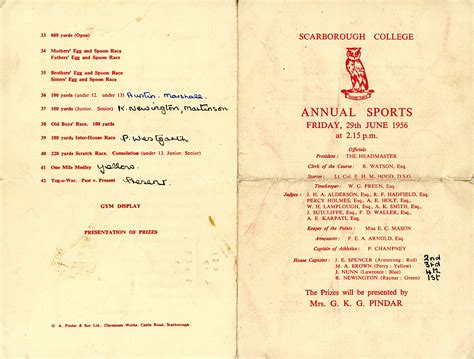 33 880 yards (Open)
34 Mothers' Egg and Spoon Race
Fathers' Egg and Spoon Race
35 Brothers' Egg and Spoon Race
Sisters' Egg and Spoon Race
36 100 yards (under 12. under 13) Austin. Marshall.
37 100 yards (Junior. Senior) K. Newington, Martinson
38 Old Boys' Race. 100 yards
39 100 yards Inter-House Race P. Westgarth
40 220 yards Scratch Race. Consolation (under 13. Junior. Senior)
41 One Mile Medley Yellows.
42 Tug-o-War. Past v. Present Present.
GYM DISPLAY
PRESENTATION OF PRIZES
G. A. Pindar & Son Ltd., Claremont Works, Castle Road, Scarborough
SCARBOROUGH COLLEGE
ANNUAL SPORTS
FRIDAY, 29th JUNE 1956
at 2.15 p.m.
Officials
President : THE HEADMASTER
Clerk of the Course : R. WATSON, Esq.
Starter : Lt. Col. E. H. M. HOOD, D.S.O.
Timekeeper : W. G. PREEN, Esq.
Judges : J. H. A. ALDERSON, Esq., R. F. HADFIELD, Esq.
PERCY HOLMES, Esq., A. E. HOLT, Esq.
W. H. LAMPLOUGH, Esq., A. K. SMITH, Esq.
J. SUTCLIFFE, Esq., F. D. WALLER, Esq.
A. E. KARPATI, Esq.
Keeper of the Points : Miss E. C. MASON
Announcer : F. E. A. ARNOLD, Esq.
Captain of Athletics : P. CHAMPNEY
House Captains : J. E. SPENCER (Armstrong : Red) 2nd
M. A. BROWN (Percy : Yellow) 3rd
J. NUNN (Lawrence : Blue) 4th
R. NEWINGTON (Raynar : Green) 1st
The Prizes will be presented by
Mrs. G. K. G. PINDAR